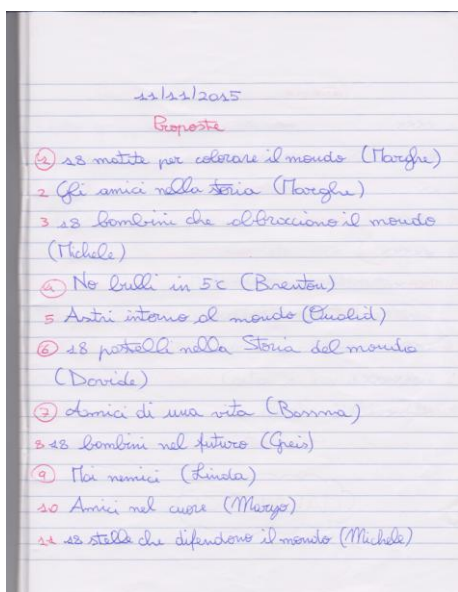 11/11/2015
Proposte
1 18 matite per colorare il mondo (Marghe)
2 Gli amici nella storia (Marghe)
3 18 bambini che abbracciono il mondo
(Michele)
4 No bulli in 5c (Brenton)
5 Astri intorno al mondo (Oualid)
6 18 pastelli nella Storia del mondo
(Davide)
7 Amici di una vita (Bamma)
8 18 bambini nel futuro (Greis)
9 Mai nemici (Linda)
10 Amici nel cuore (Maryo)
11 18 stelle che difendono il mondo (Michele)